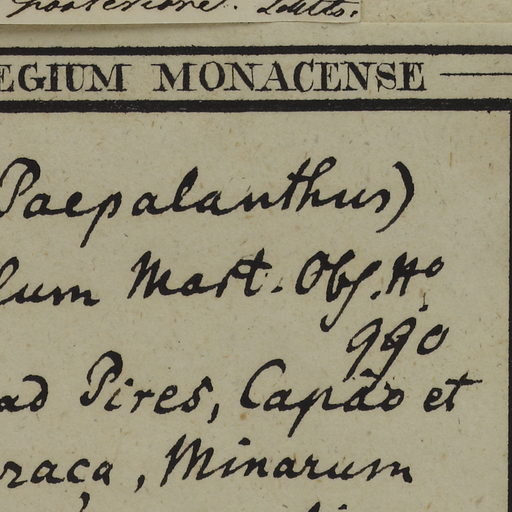 posteriore.
EGIUM MONACENSE
Paepalanthus)
lum Mart. Obs. No
990
ad Pires, Capão et
raça, Minarum